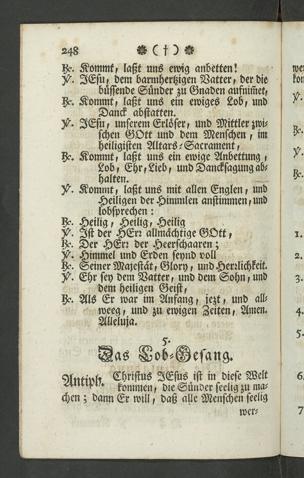 248 ❉ ( † ) ❉
℟. Kommt, laßt uns ewig anbetten!
℣. JEsu, dem barmhertzigen Vatter, der die
büssende Sünder zu Gnaden aufnihmt,
℟. Kommt, laßt uns ein ewiges Lob, und
Danck abstatten.
℣. JEsu, unserem Erlöser, und Mittler zwi-
schen GOtt und dem Menschen, im
heiligisten Altars-Sacrament,
℟. Kommt, laßt uns ein ewige Anbettung,
Lob, Ehr, Lieb, und Dancksagung ab-
halten.
℣. Kommt, laßt uns mit allen Englen, und
Heiligen der Himmlen anstimmen, und
lobsprechen:
℟. Heilig, Heilig, Heilig
℣. Ist der HErr allmächtige GOtt,
℟. Der HErr der Heerschaaren;
℣. Himmel und Erden seynd voll
℟. Seiner Majestät, Glory, und Herzlichkeit.
℣. Ehr sey dem Vatter, und dem Sohn, und
dem heiligen Geist,
℟. Als Er war im Anfang, jezt, und all-
weeg, und zu ewigen Zeiten, Amen.
Alleluja.
5.
Das Lob-Gesang.
Antiph. Christus JEsus ist in diese Welt
kommen, die Sünder seelig zu ma-
chen; dann Er will, daß alle Menschen seelig
wer-